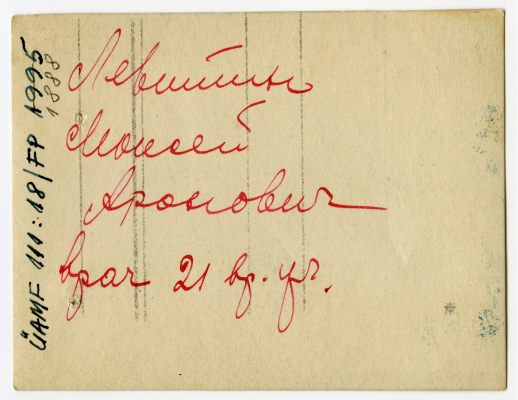 Левитин
Моисей
Аронович
врач 21 вр. уч.
ÜAMF 111:18/FP 1995
1888